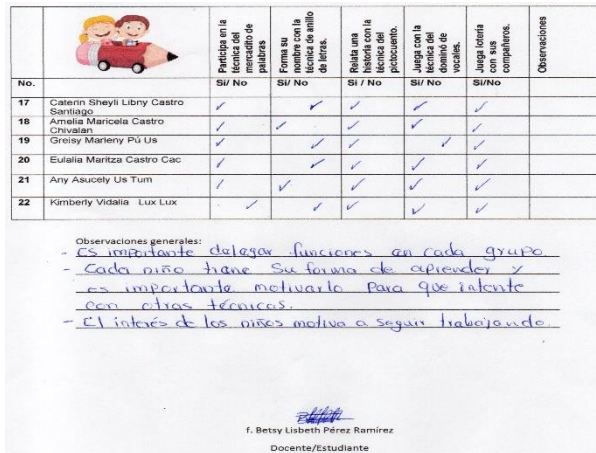 Participa en la técnica del mercadito de palabras
Forma su nombre con la técnica de anillo de letras.
Relata una historia con la técnica del pictocuento.
Juega con la técnica del dominó de vocales.
Juega lotería con sus compañeros.
Observaciones
No. Si/ No Si/ No Si / No Si/ No Si/No
17 Caterin Sheyli Libny Castro Santiago ✓ ✓ ✓ ✓ ✓
18 Amelia Maricela Castro Chivalan ✓ ✓ ✓ ✓ ✓
19 Greisy Marleny Pú Us ✓ ✓ ✓ ✓ ✓
20 Eulalia Maritza Castro Cac ✓ ✓ ✓ ✓ ✓
21 Any Asucely Us Tum ✓ ✓ ✓ ✓ ✓
22 Kimberly Vidalia Lux Lux ✓ ✓ ✓ ✓ ✓
Observaciones generales:
- Es importante delegar funciones en cada grupo.
- Cada niño tiene su forma de aprender y
es importante motivarlo para que intente
con otras técnicas.
- El interés de los niños motiva a seguir trabajando.
f. Betsy Lisbeth Pérez Ramírez
Docente/Estudiante